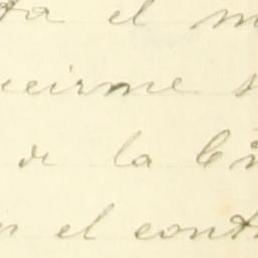 ta el m
ucirme s
de la Cá
el cont